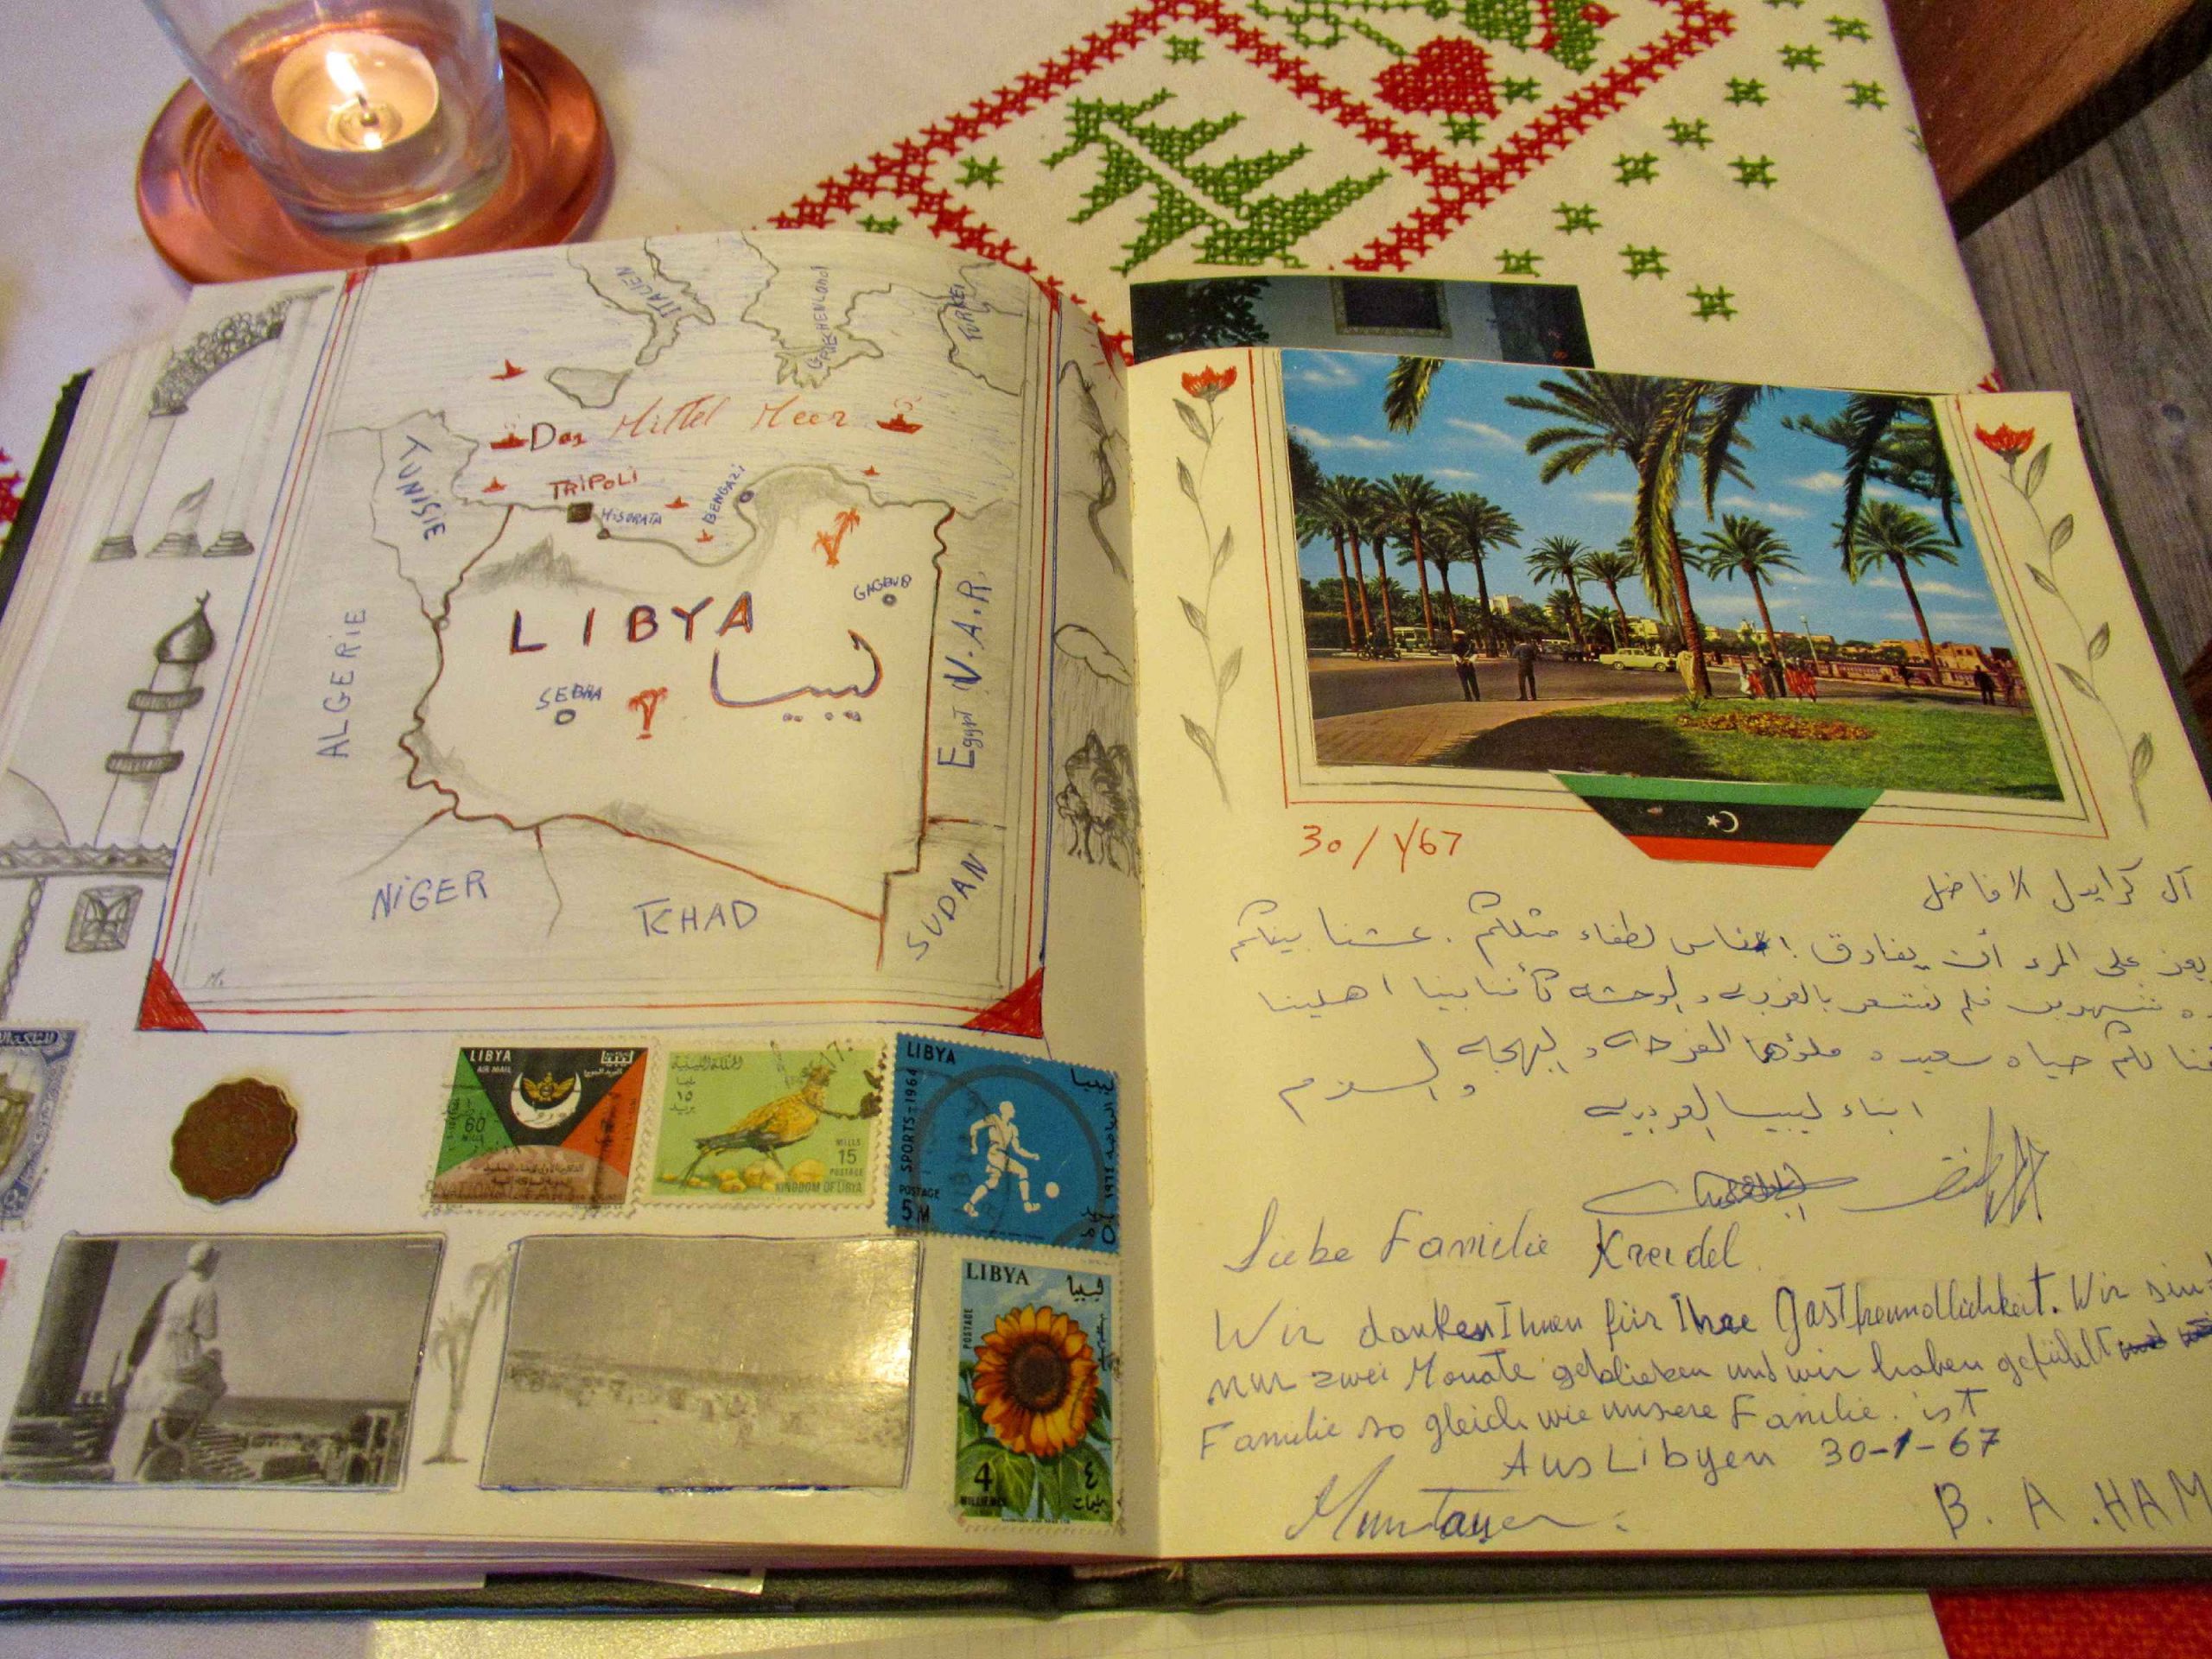 ITALIEN
GRIECHENLAND
TÜRKEI
Das Mittel Meer
TUNISIE
TRIPOLI
MISURATA
BENGAZI
GAGBUB
LIBYA
ليبيا
SEBHA
ALGERIE
Egypt V.A.R.
NIGER
TCHAD
SUDAN
LIBYA
AIR MAIL
ليبيا
60
المملكة الليبية
ليبيا
١٥
بريد
MILLS
15
POSTAGE
KINGDOM OF LIBYA
LIBYA
ليبيا
SPORTS-1964
POSTAGE
5 M
LIBYA
ليبيا
POSTAGE
4
٤
مليمات
30/1/67
آل كرايدل الافاضل
يعز على المرء أن يفارق اناس لطفاء مثلكم. عشنا بينكم
شهرين فلم نشعر بالغربه والوحشه كأننا بين اهلينا
لكم حياه سعيده ملؤها الفرحه والبهجه والسلام
ابناء ليبيا العربيه
Liebe Familie Kreidel
Wir danken Ihnen für Ihre Gastfreundlichkeit. Wir sind
nur zwei Monate geblieben und wir haben gefühlt
Familie so gleich wie unsere Familie. ist
Aus Libyen 30-1-67
B. A. HAM